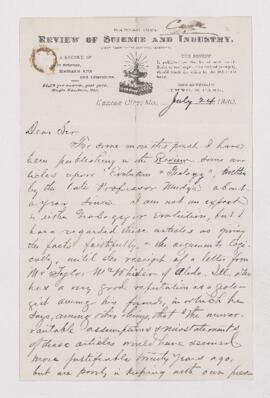 KANSAS CITY
REVIEW OF SCIENCE AND INDUSTRY.
A RECORD OF
THE REVIEW
Kansas City, Mo., July 24 1880.
Dear Sir
For some months past I have
been publishing in the Review some
articles upon Evolution & Geology, written
by the late Professor Mudge about
a year since. I am not an expert
in either Geology or evolution, but I
have regarded these articles as giving
the facts faithfully, & the arguments logi-
cally, until the receipt of a letter from
Mr Taylor of Aledo, Ill. who
has a very good reputation as a geolo-
gist among his friends, in which he
says, among other things, that "the unwar-
rantable assumptions & misstatements
of these articles would have seemed
more justifiable twenty years ago,
but are poorly in keeping with our pres-